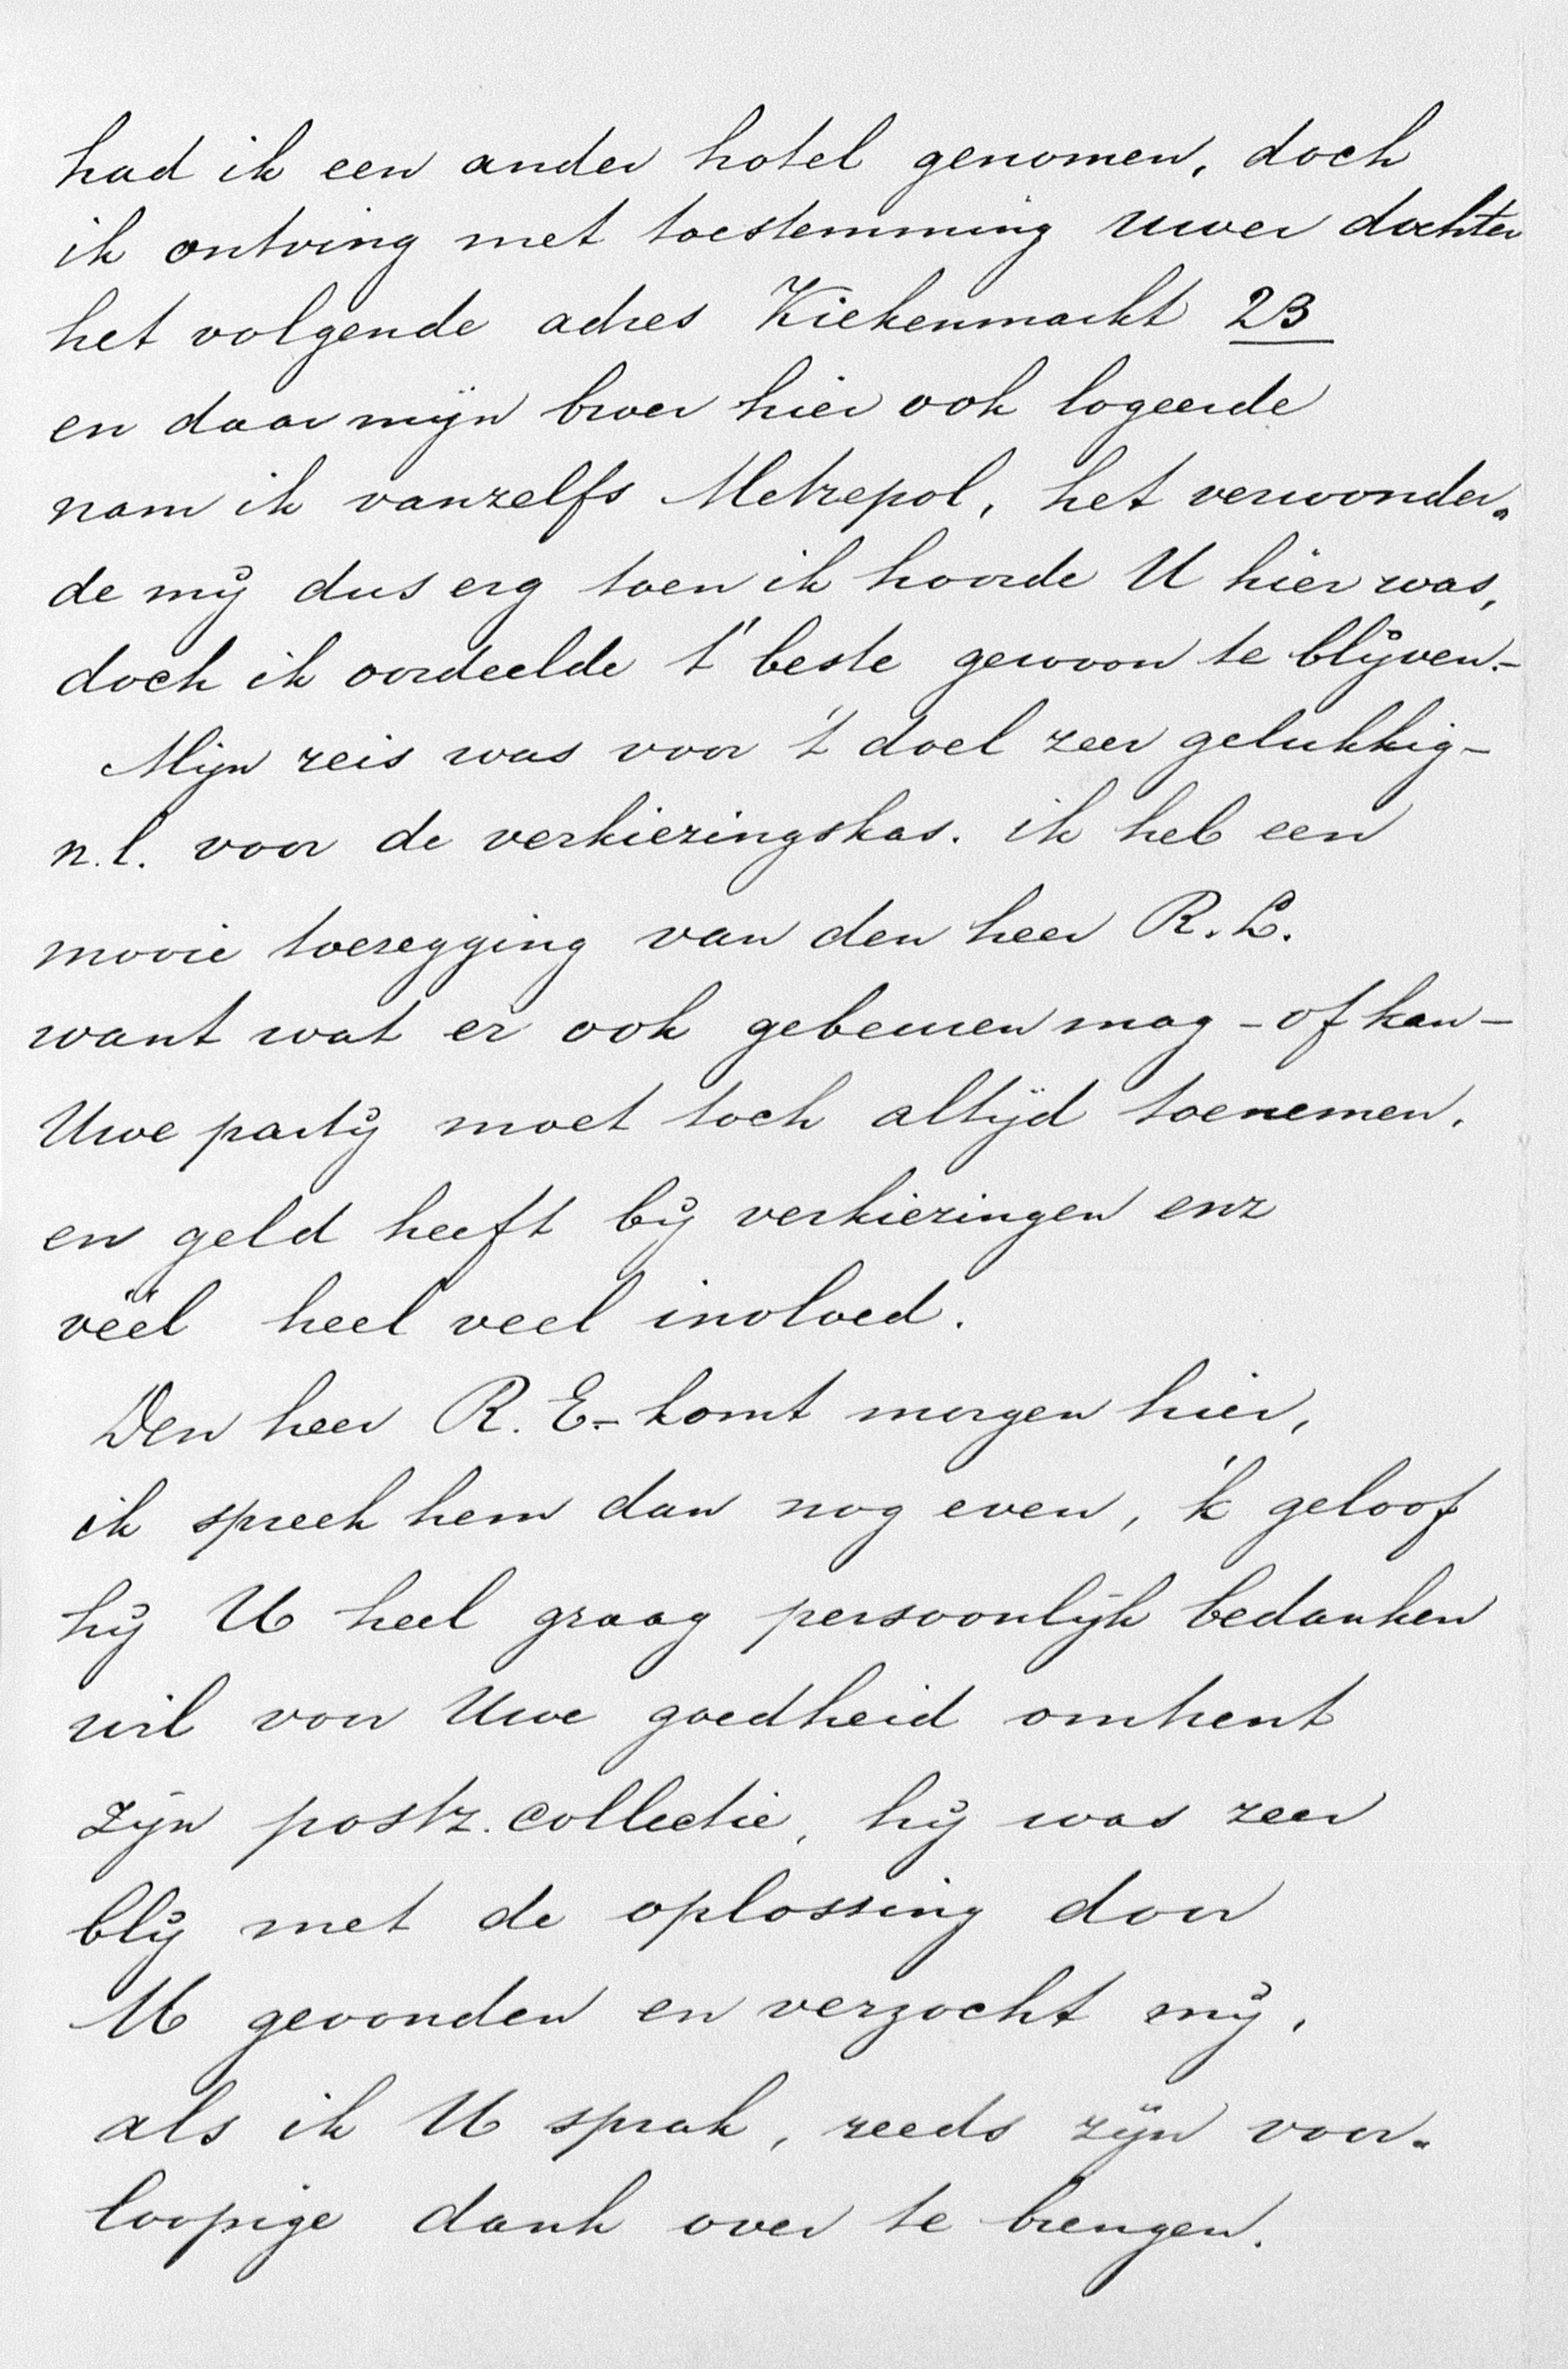 had ik een ander hotel genomen, doch
ik ontving met toestemming uwer dochter
het volgende adres Kiekenmarkt 23
en daar mijn broer hier ook logeerde
nam ik vanzelfs Metrepol, het verwonder-
de mij dus erg toen ik hoorde U hier was,
doch ik oordeelde t' beste gewoon te blijven.-
Mijn reis was voor 't doel zeer gelukkig-
n.l. voor de verkiezingskas. ik heb een
mooie toezegging van den heer R.L.
want wat er ook gebeuren mag - of kan -
Uwe partij moet toch altijd toenemen.
en geld heeft bij verkiezingen enz
véél heel veel invloed.
Den heer R. E.- komt morgen hier,
ik spreek hem dan nog even, 'k geloof
hij U heel graag persoonlijk bedanken
wil voor Uwe goedheid omtrent
zijn postz. collectie, hij was zeer
blij met de oplossing door
U gevonden en verzocht mij,
als ik U sprak, reeds zijn voor-
loopige dank over te brengen.